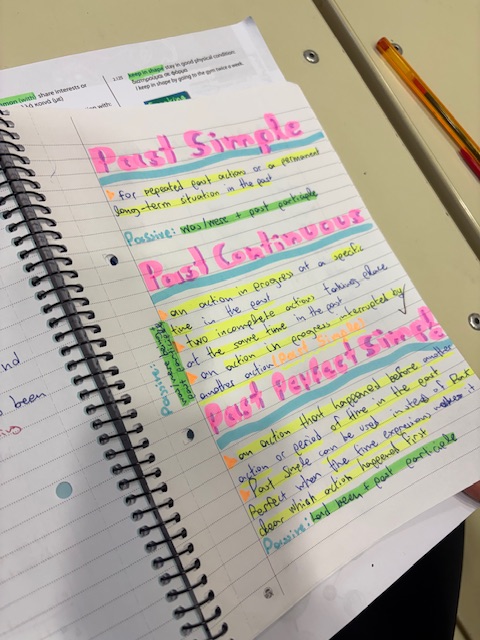 keep in shape stay in good physical condition
διατηρούμαι σε φόρμα
I keep in shape by going to the gym twice a week.
mmon (with) share interests or
κοινά (με)
Past Simple
for repeated past actions or a permanent
long-term situation in the past
Passive: was/were + past participle
Past Continuous
an action in progress at a specific
time in the past
two incomplete actions taking place
at the same time in the past
an action in progress interrupted by
another action (Past Simple)
Passive:
Past Perfect Simple
an action that happened before another
action or period of time in the past
Past Simple can be used instead of Past
Perfect when the time expressions makes it
clear which action happened first
Passive: had been + past participle
nd
been